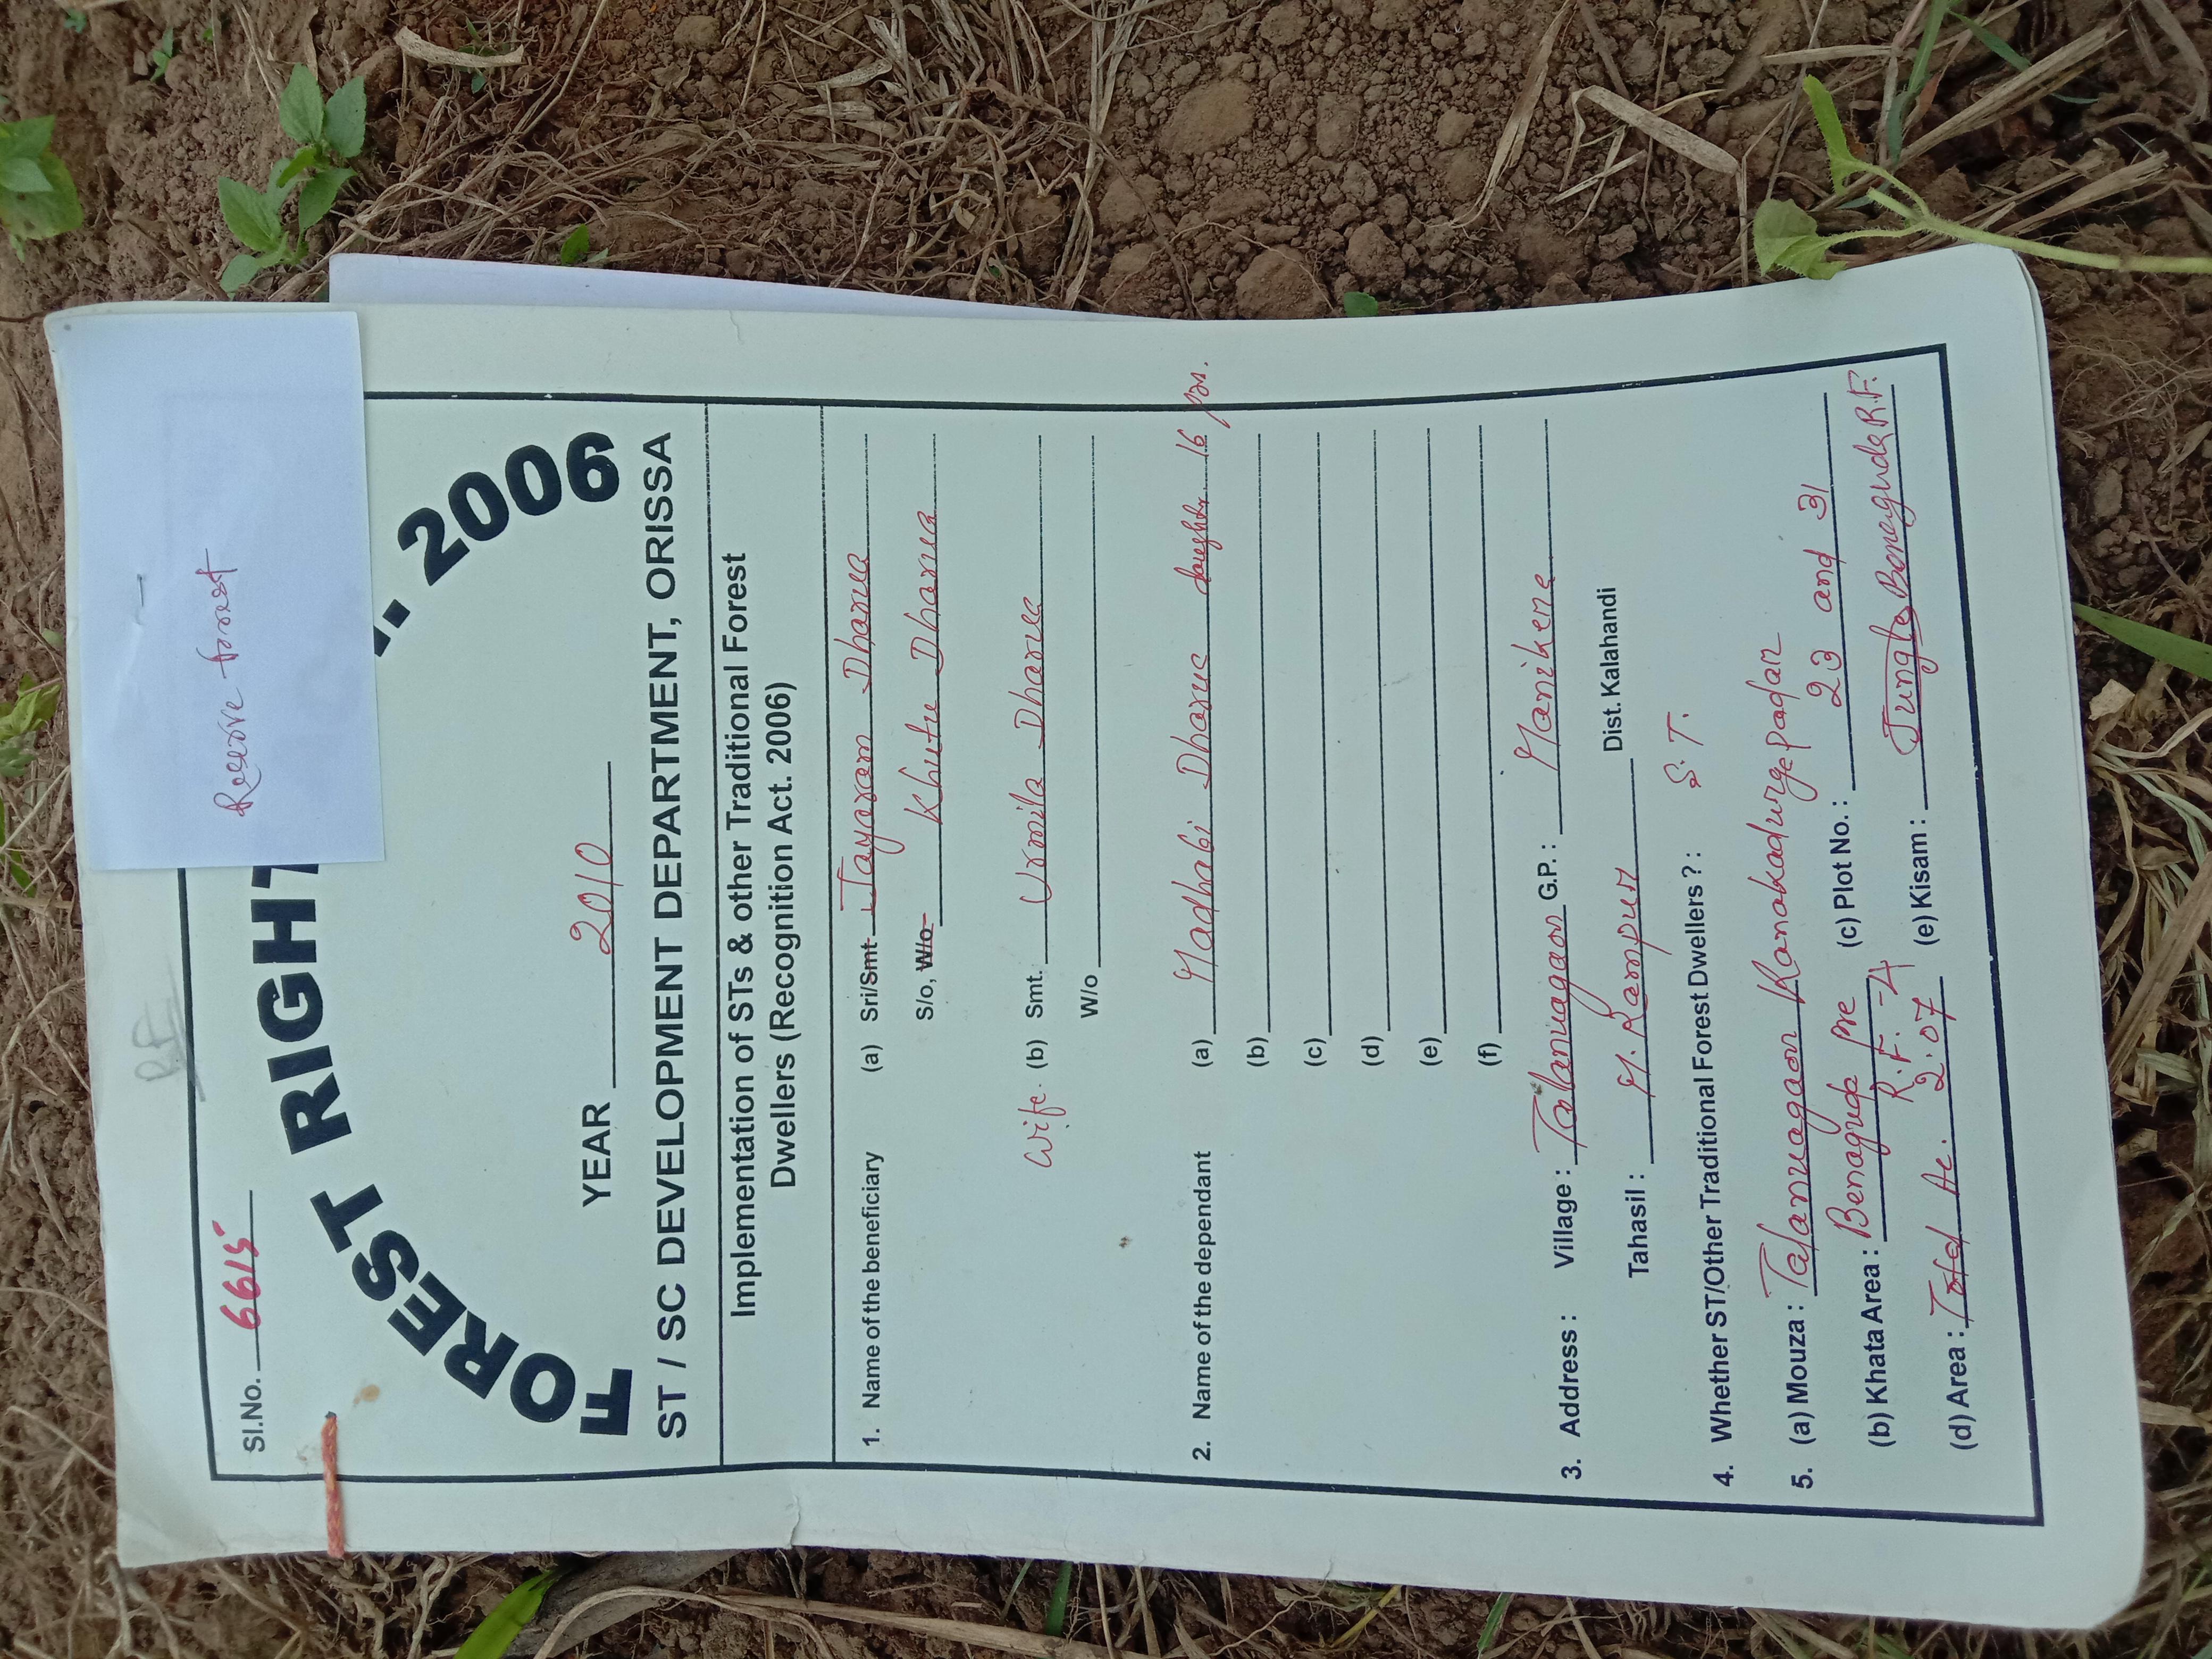 Reserve forest
RF
Sl.No. 6615
FOREST RIGHT . 2006
YEAR 2010
ST / SC DEVELOPMENT DEPARTMENT, ORISSA
Implementation of STs & other Traditional Forest
Dwellers (Recognition Act. 2006)
1. Name of the beneficiary (a) Sri/Smt. Jayaram Dharua
S/o, W/o Khutu Dharua
Wife. (b) Smt. Urmila Dharua
W/o
2. Name of the dependant (a) Madhabi Dharua daughter 16 yrs.
(b)
(c)
(d)
(e)
(f)
3. Address : Village : Talanuagaon G.P. : Manikera
Tahasil : M. Rampur Dist. Kalahandi
4. Whether ST/Other Traditional Forest Dwellers ? : S.T.
5. (a) Mouza : Talanuagaon Kanakadurgapadar
(b) Khata Area : Benaguda Pre R.F.-4 (c) Plot No. : 23 and 31
(d) Area : Total Ac. 2.07 (e) Kisam : Jungle Benaguda R.F.